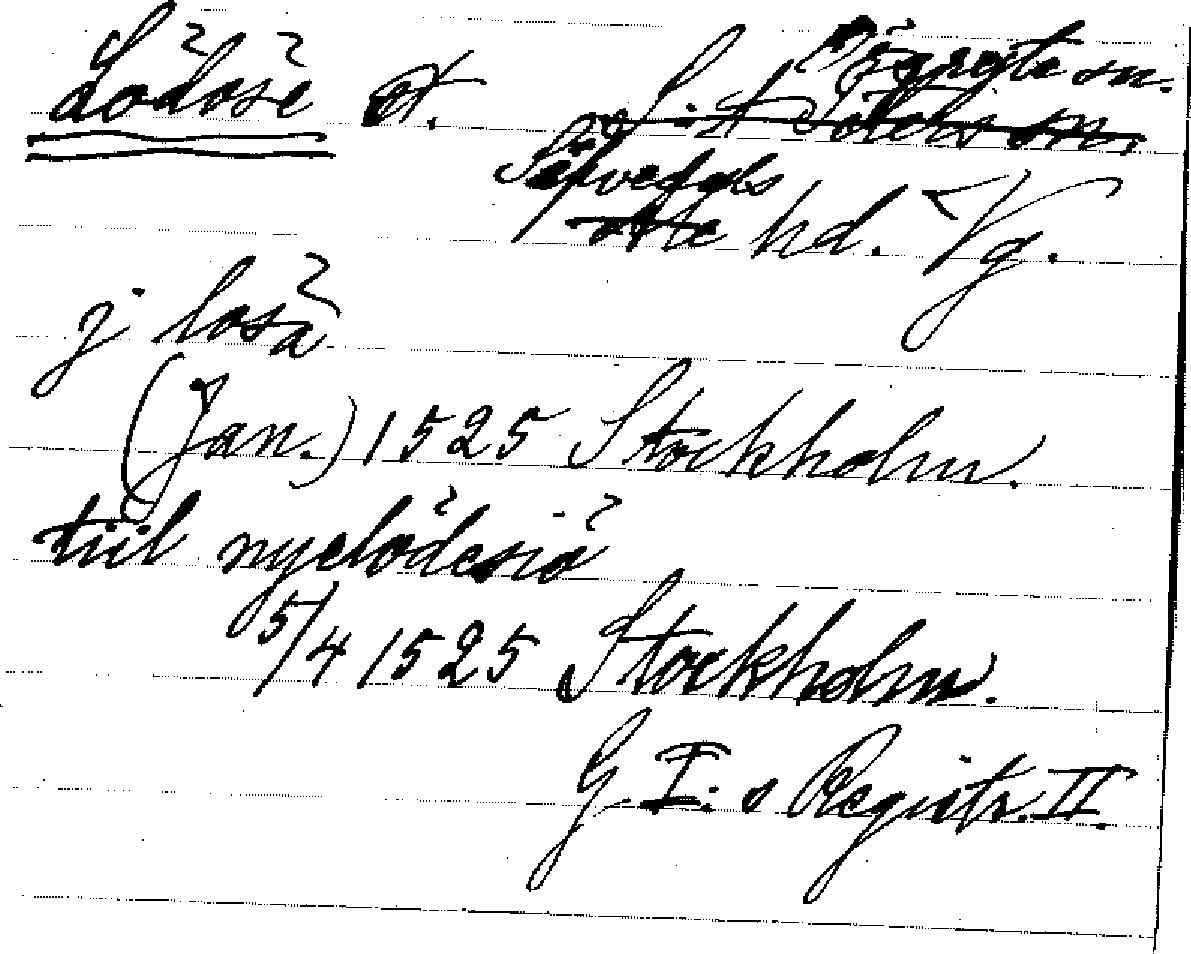 Lödöse st. Örgryte sn.
Sävedals hd. Vg.
j losä
(Jan.) 1525 Stockholm.
tiil nyelödesiö
5/4 1525 Stockholm.
G I:s Registr. II.